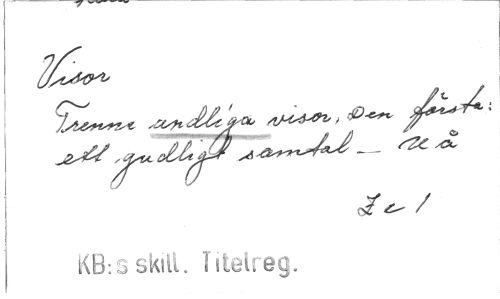 Visor
Trenne andliga visor. Den första:
ett gudligt samtal — U å
Z c 1
KB:s skill. Titelreg.